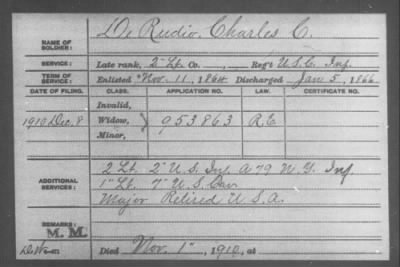 De Rudio, Charles C.
NAME OF SOLDIER:
SERVICE: Late rank, 2" Lt. Co. , Reg't U.S.C. Inf.
TERM OF SERVICE: Enlisted Nov. 11, 1864 Discharged Jan 5, 1866
DATE OF FILING. CLASS. APPLICATION NO. LAW. CERTIFICATE NO.
Invalid,
1910 Dec. 8 Widow, 953863
Minor,
2 Lt. 2" U.S. Inf. A 79 N.Y. Inf
ADDITIONAL SERVICES: 1" Lt. 7" U.S. Cav
Major Retired U.S.A.
REMARKS: M. M.
Died Nov. 1", 1910, at